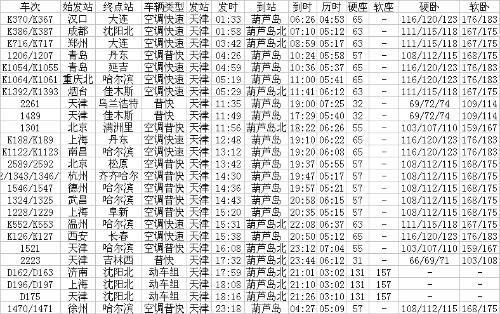 车次 始发站 终点站 车辆类型 发站 发时 到站 到时 历时 硬座 软座 硬卧 软卧
K370/K367 汉口 大连 空调快速 天津 01:33 葫芦岛 06:26 04:53 65 - 116/120/123 176/183
K386/K387 成都 沈阳北 空调快速 天津 01:58 葫芦岛北 07:10 05:12 63 - 111/115/118 167/175
K716/K717 郑州 大连 空调快速 天津 03:42 葫芦岛北 08:59 05:17 63 - 111/115/118 167/175
1206/1207 青岛 丹东 空调普快 天津 04:26 葫芦岛 10:24 05:58 57 - 108/112/115 168/175
K1054/K1055 青岛 延吉 空调快速 天津 04:59 葫芦岛 10:36 05:37 65 - 116/120/123 176/183
K1064/K1061 重庆北 哈尔滨 空调快速 天津 05:19 葫芦岛 11:00 05:41 65 - 116/120/123 176/183
K1392/K1393 烟台 佳木斯 空调快速 天津 05:29 葫芦岛北 10:41 05:12 63 - 111/115/118 167/175
2261 天津 乌兰浩特 普快 天津 11:35 葫芦岛 19:00 07:25 32 - 69/72/74 109/114
1489 天津 佳木斯 普快 天津 11:49 葫芦岛 17:29 05:40 32 - 69/72/74 109/114
1301 北京 满洲里 空调普快 天津 11:56 葫芦岛北 18:22 06:26 55 - 103/107/110 159/167
K188/K189 上海 丹东 空调快速 天津 12:48 葫芦岛 19:10 06:22 65 - 116/120/123 176/183
K1122/K1123 南昌 哈尔滨 空调快速 天津 13:12 葫芦岛 19:20 06:08 65 - 116/120/123 176/183
2589/2592 北京 松原 空调普快 天津 13:42 葫芦岛 19:37 05:55 57 - 108/112/115 168/175
2/1343/1346/ 杭州 齐齐哈尔 空调普快 天津 14:30 葫芦岛 19:47 05:17 57 - 108/112/115 168/175
1546/1547 德州 哈尔滨 空调普快 天津 14:36 葫芦岛 19:57 05:21 57 - 108/112/115 168/175
1324/1325 武昌 哈尔滨 空调普快 天津 14:43 葫芦岛 20:58 06:15 57 - 108/112/115 168/175
1228/1229 上海 阜新 空调普快 天津 15:20 葫芦岛 20:35 05:15 57 - 108/112/115 168/175
K552/K553 温州 哈尔滨 空调快速 天津 15:31 葫芦岛北 22:08 06:37 63 - 111/115/118 167/175
K126/K127 西安 长春 空调快速 天津 15:38 葫芦岛北 20:50 05:12 63 - 111/115/118 167/175
1521 天津 哈尔滨 空调普快 天津 16:08 葫芦岛北 23:12 07:04 55 - 103/107/110 159/167
2223 天津 吉林西 普快 天津 17:32 葫芦岛北 23:44 06:12 31 - 66/69/71 103/108
D162/D163 济南 沈阳北 动车组 天津 17:59 葫芦岛北 21:01 03:02 131 157 - -
D196/D197 上海 沈阳北 动车组 天津 18:08 葫芦岛北 21:11 03:03 131 157 - -
D175 天津 沈阳北 动车组 天津 18:16 葫芦岛北 21:26 03:10 131 157 - -
1470/1471 徐州 哈尔滨 空调普快 天津 23:18 葫芦岛 04:27 05:09 57 - 108/112/115 168/175